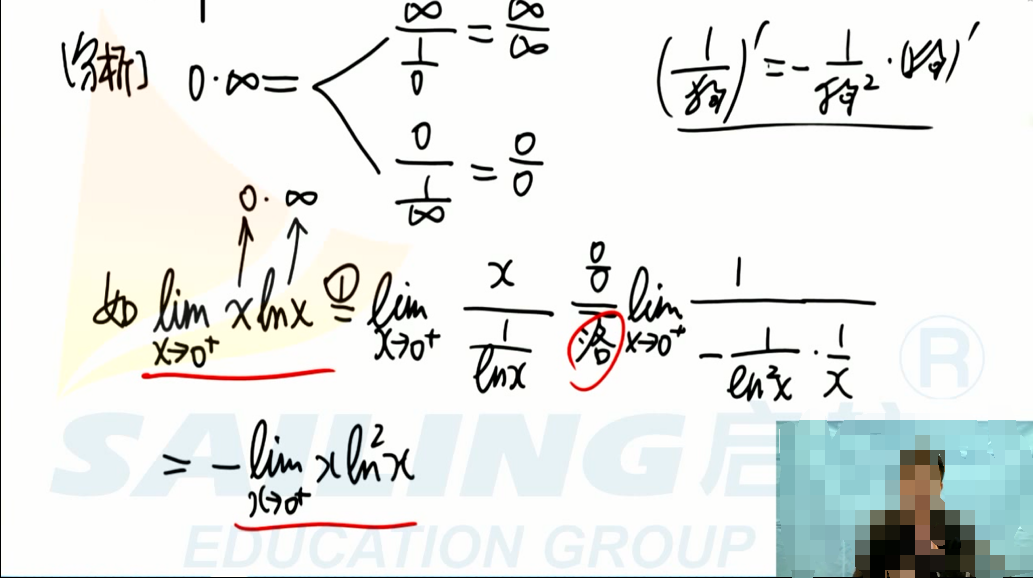 [分析] 0·∞ = ∞/(1/0) = ∞/∞
0/(1/∞) = 0/0
(1/狗)′ = -1/狗²·(狗)′
0·∞
如 lim x→0⁺ xlnx ①= lim x→0⁺ x/(1/lnx) 0/0 洛 lim x→0⁺ 1/(-1/ln²x·1/x)
= -lim x→0⁺ xln²x
SAILING启航®
EDUCATION GROUP